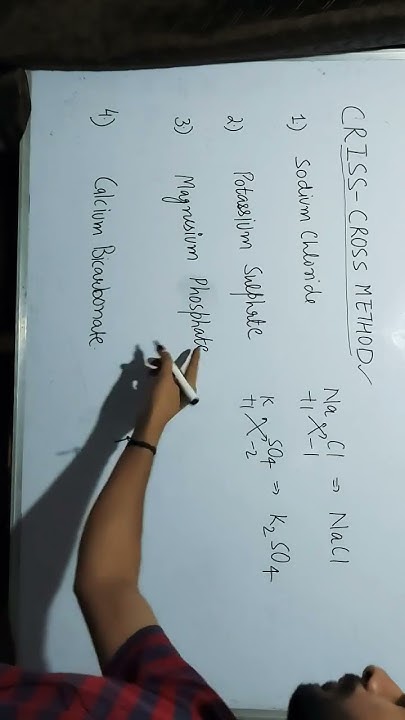 CRISS-CROSS METHOD
1) Sodium Chloride Na Cl ⇒ NaCl
+1 -1
2) Potassium Sulphate K SO4 ⇒ K2SO4
+1 -2
3) Magnesium Phosphate
4) Calcium Bicarbonate.